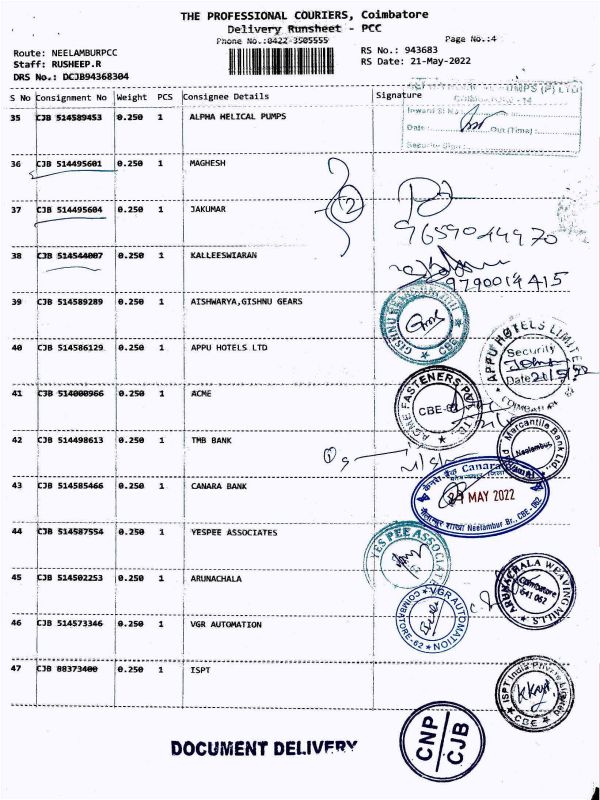 THE PROFESSIONAL COURIERS, Coimbatore
Delivery Runsheet - PCC
Phone No.:0422-3505555 Page No.:4
Route: NEELAMBURPCC RS No.: 943683
Staff: RUSHEEP.R RS Date: 21-May-2022
DRS No.: DCJB94368304
S No Consignment No Weight PCS Consignee Details Signature
35 CJB 514589453 0.250 1 ALPHA HELICAL PUMPS
PUMPS (P) LTD
Inward Sl No
Date : Out (Time) :
Security Sign :
36 CJB 514495601 0.250 1 MAGHESH
2
37 CJB 514495604 0.250 1 JAKUMAR
9659044970
38 CJB 514544007 0.250 1 KALLEESWIARAN
9790014415
39 CJB 514589289 0.250 1 AISHWARYA,GISHNU GEARS
GISHNU CBE
40 CJB 514586129 0.250 1 APPU HOTELS LTD
APPU HOTELS LIMITED
Security
Date 21/5/22
COIMBATORE
41 CJB 514000966 0.250 1 ACME
ACME FASTENERS PVT. LTD.
CBE-62
42 CJB 514498613 0.250 1 TMB BANK
Mercantile Bank Ltd.
Neelambur
43 CJB 514585466 0.250 1 CANARA BANK
Canara
21 MAY 2022
Neelambur Br., CBE-062
44 CJB 514587554 0.250 1 YESPEE ASSOCIATES
YES PEE ASSOCIATES
62
45 CJB 514502253 0.250 1 ARUNACHALA
ARUNACHALA WEAVING MILLS
Coimbatore
641 062
46 CJB 514573346 0.250 1 VGR AUTOMATION
VGR AUTOMATION
COIMBATORE-62
47 CJB 88373400 0.250 1 ISPT
ISPT India Private Limited
CBE
DOCUMENT DELIVERY
CNP
CJB